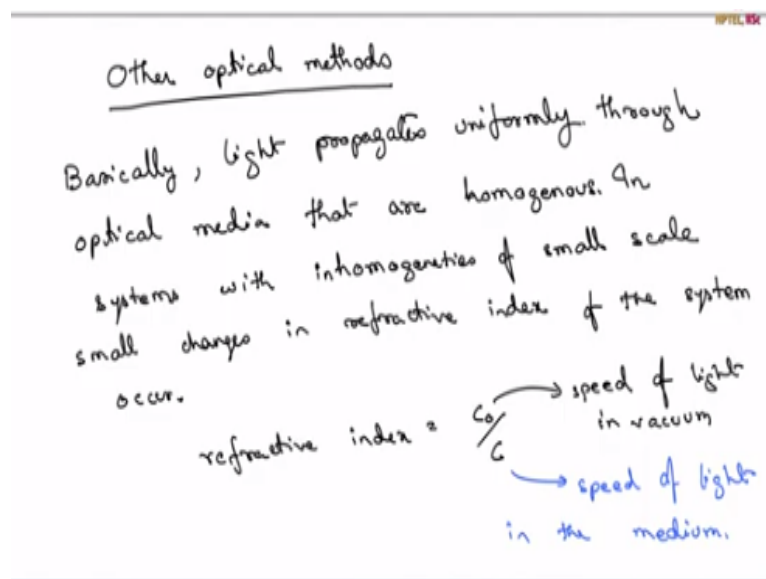 NPTEL, IISc
Other optical methods
Basically, light propagates uniformly through
optical media that are homogenous. In
systems with inhomogeneties of small scale
small changes in refractive index of the system
occur.
refractive index = C₀/C → speed of light
in vacuum
→ speed of light
in the medium.